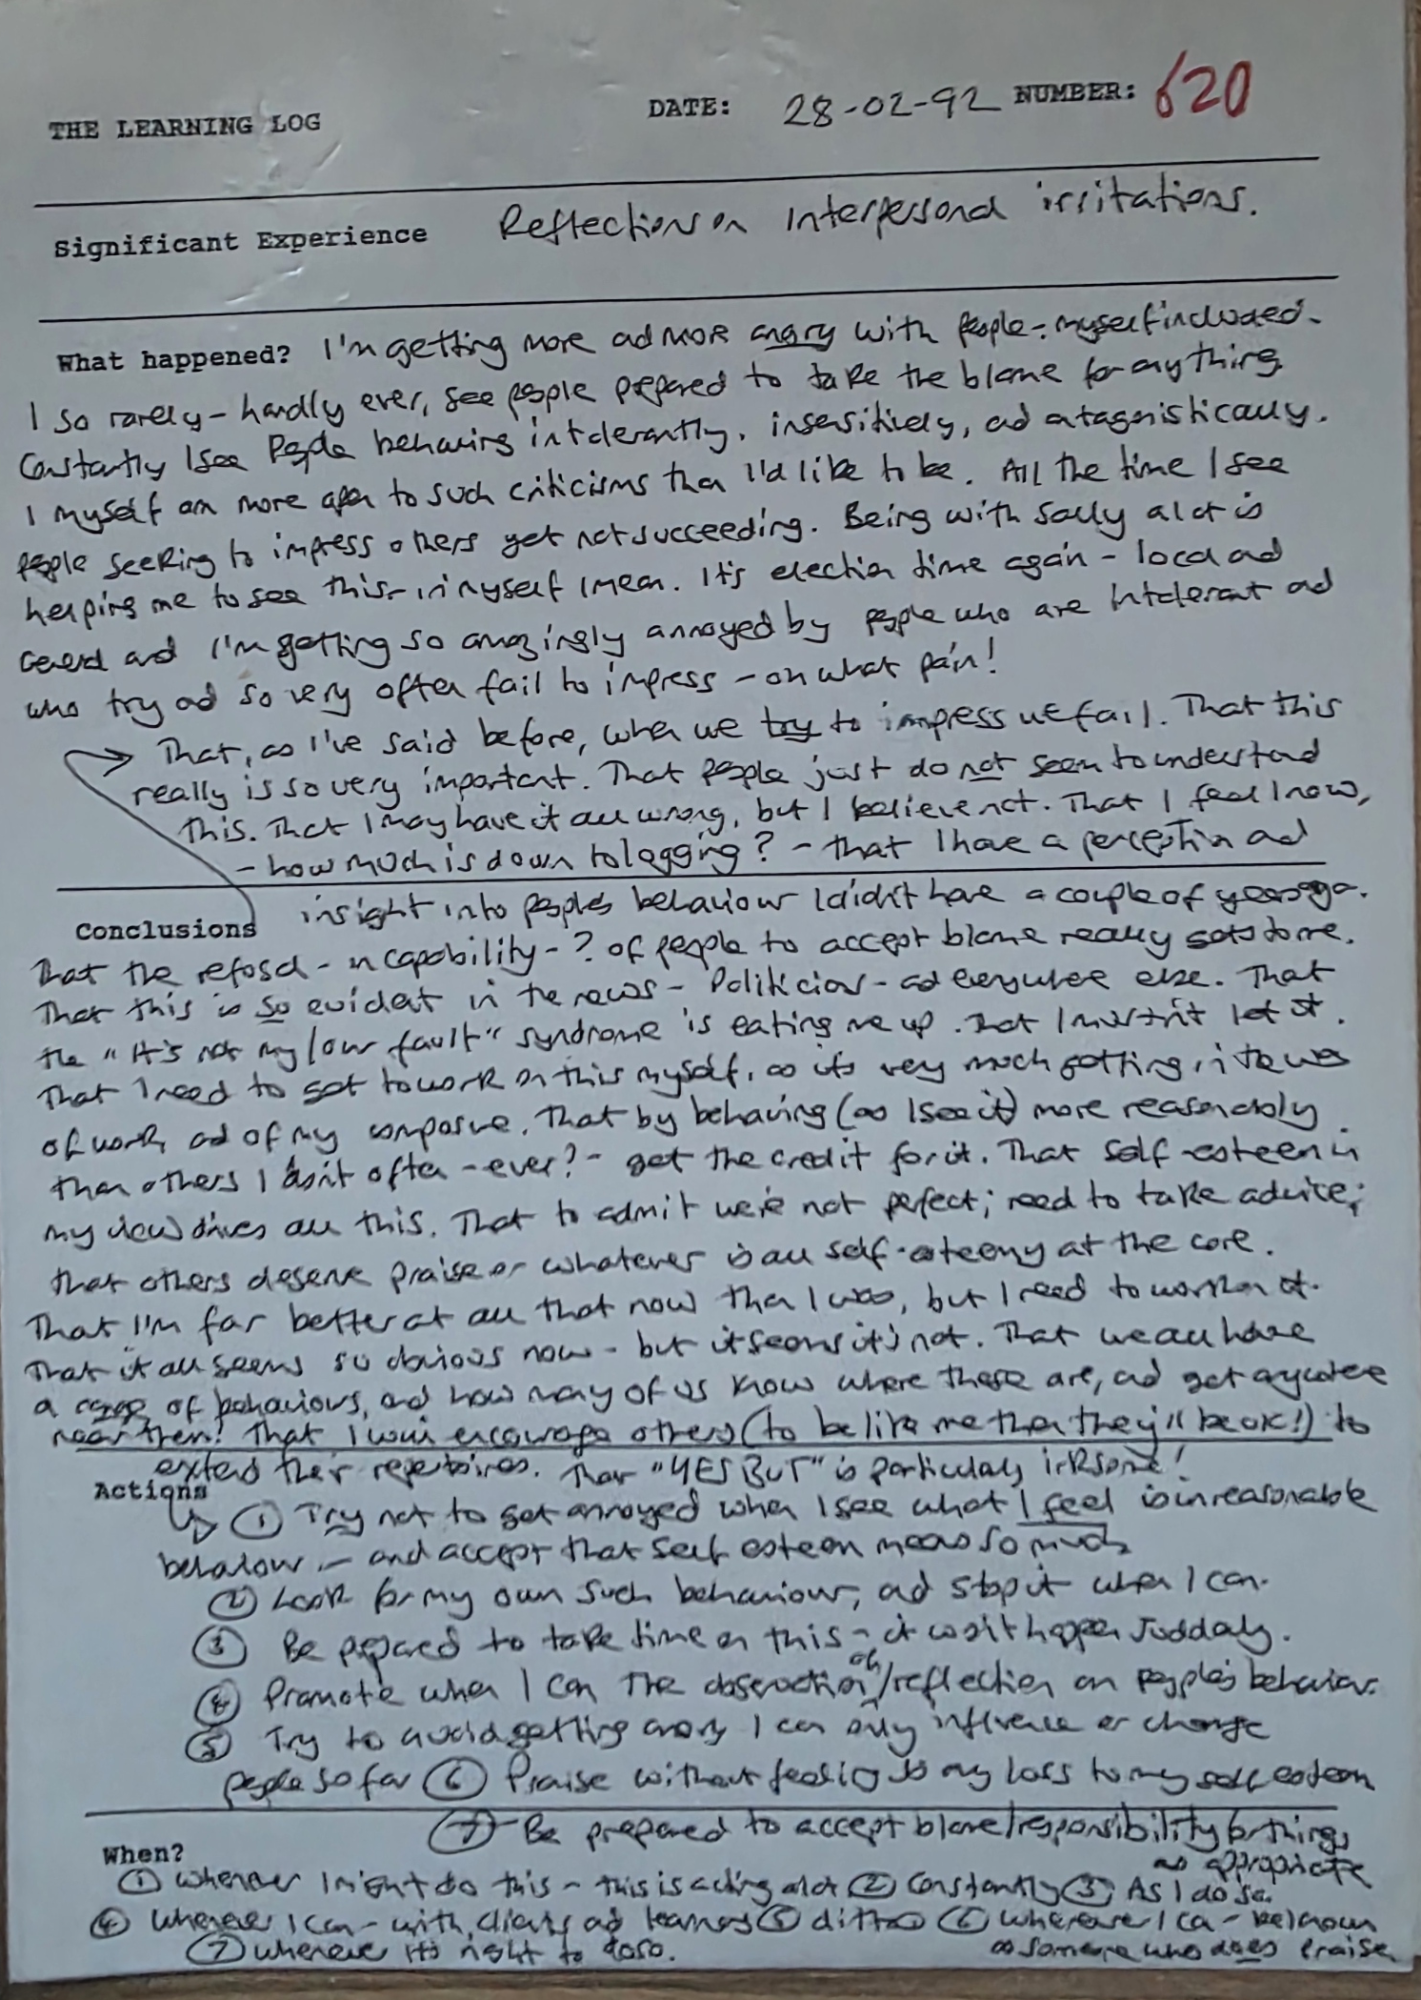 THE LEARNING LOG DATE: 28-02-92 NUMBER: 620
Significant Experience Reflections on interpersonal irritations.
What happened? I'm getting more and more angry with people - myself included.
I so rarely - hardly ever, see people prepared to take the blame for anything
Constantly I see people behaving intolerantly, insensitively, and antagonistically.
I myself am more open to such criticisms than I'd like to be. All the time I see
people seeking to impress others yet not succeeding. Being with Sally a lot is
helping me to see this - in myself I mean. It's election time again - local and
General and I'm getting so amazingly annoyed by people who are intolerant and
who try and so very often fail to impress - oh what pain!
That, as I've said before, when we try to impress we fail. That this
really is so very important. That people just do not seem to understand
this. That I may have it all wrong, but I believe not. That I feel I now,
- how much is down to logging? - that I have a perception and
Conclusions insight into people's behaviour I didn't have a couple of years ago.
That the refusal - incapability - ? of people to accept blame really gets to me.
That this is so evident in the news - Politicians - and everywhere else. That
the "it's not my/our fault" syndrome is eating me up. That I mustn't let it.
That I need to get to work on this myself, as it's very much getting in the way
of work, and of my composure. That by behaving (as I see it) more reasonably
than others I don't often - ever? - get the credit for it. That self-esteem in
my view drives all this. That to admit we're not perfect; need to take advice;
that others deserve praise or whatever is all self-esteemy at the core.
That I'm far better at all that now than I was, but I need to work on it.
That it all seems so obvious now - but it seems it's not. That we all have
a range of behaviours, and how many of us know where these are, and get anywhere
near them! That I will encourage others (to be like me then they'll be OK!) to
extend their repertoires. That "YES BUT" is particularly irksome!
Actions
① Try not to get annoyed when I see what I feel is unreasonable
behaviour - and accept that self esteem means so much
② Look for my own such behaviour, and stop it when I can.
③ Be prepared to take time on this - it won't happen suddenly.
④ Promote when I can the observation of/reflection on people's behaviour.
⑤ Try to avoid getting angry I can only influence or change
people so far ⑥ Praise without feeling it's my loss to my self esteem
⑦ Be prepared to accept blame/responsibility for things
as appropriate
When?
① Whenever I might do this - this is acting a lot ② Constantly ③ As I do so.
④ Whenever I can - with clients and learners ⑤ ditto ⑥ wherever I can - be known
as someone who does praise
⑦ Whenever it's right to do so.